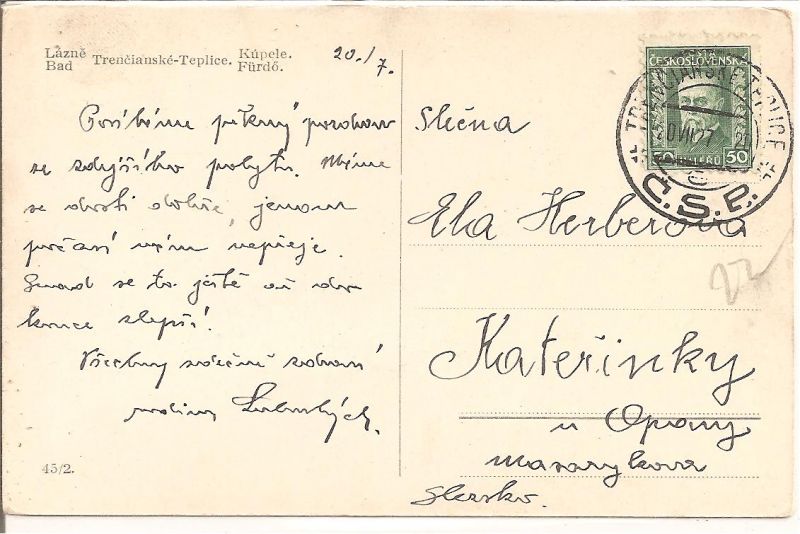 Lázně
Bad
Trenčianské-Teplice.
Kúpele.
Fürdő.
20./7.
Posíláme pěkný pozdrav
se zdejšího pobytu. Máme
se dosti dobře, jenom
počasí nám nepřeje.
Snad se to ještě
konce zlepší.
Všechny srdečně zdraví
rodina
45/2.
ČESKOSLOVENSKÁ
50
TRENČIANSKE TEPLICE
20 VII 27
Č.S.P.
Slečna
Ela Herberova
22
Kateřinky
u Opavy
Masarykova
Slezsko.